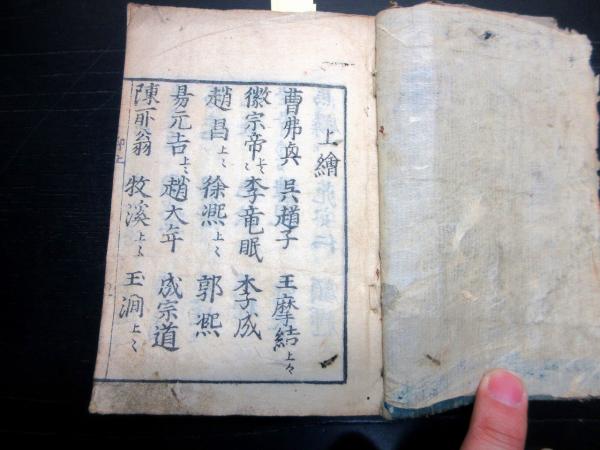 上繪
曹弗興 呉趙子 王摩結上々
徽宗帝上々 李竜眠 李成
趙昌上々 徐熙上々 郭熙
易元吉上々 趙大年 盛宗道
陳所翁 牧溪上々 玉澗上々